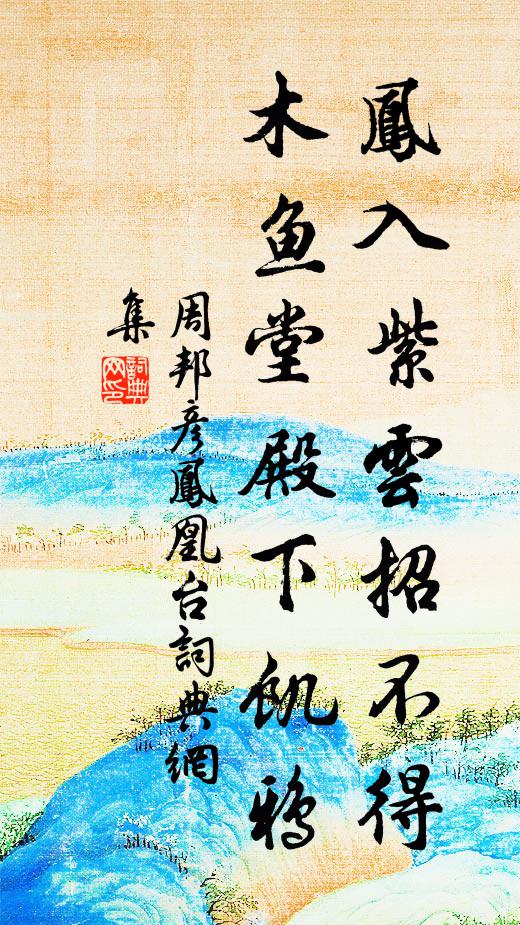 鳳入紫雲招不得
木鱼堂殿下飢鴉
周邦彦鳳凰台詞典網
集
詞典网印